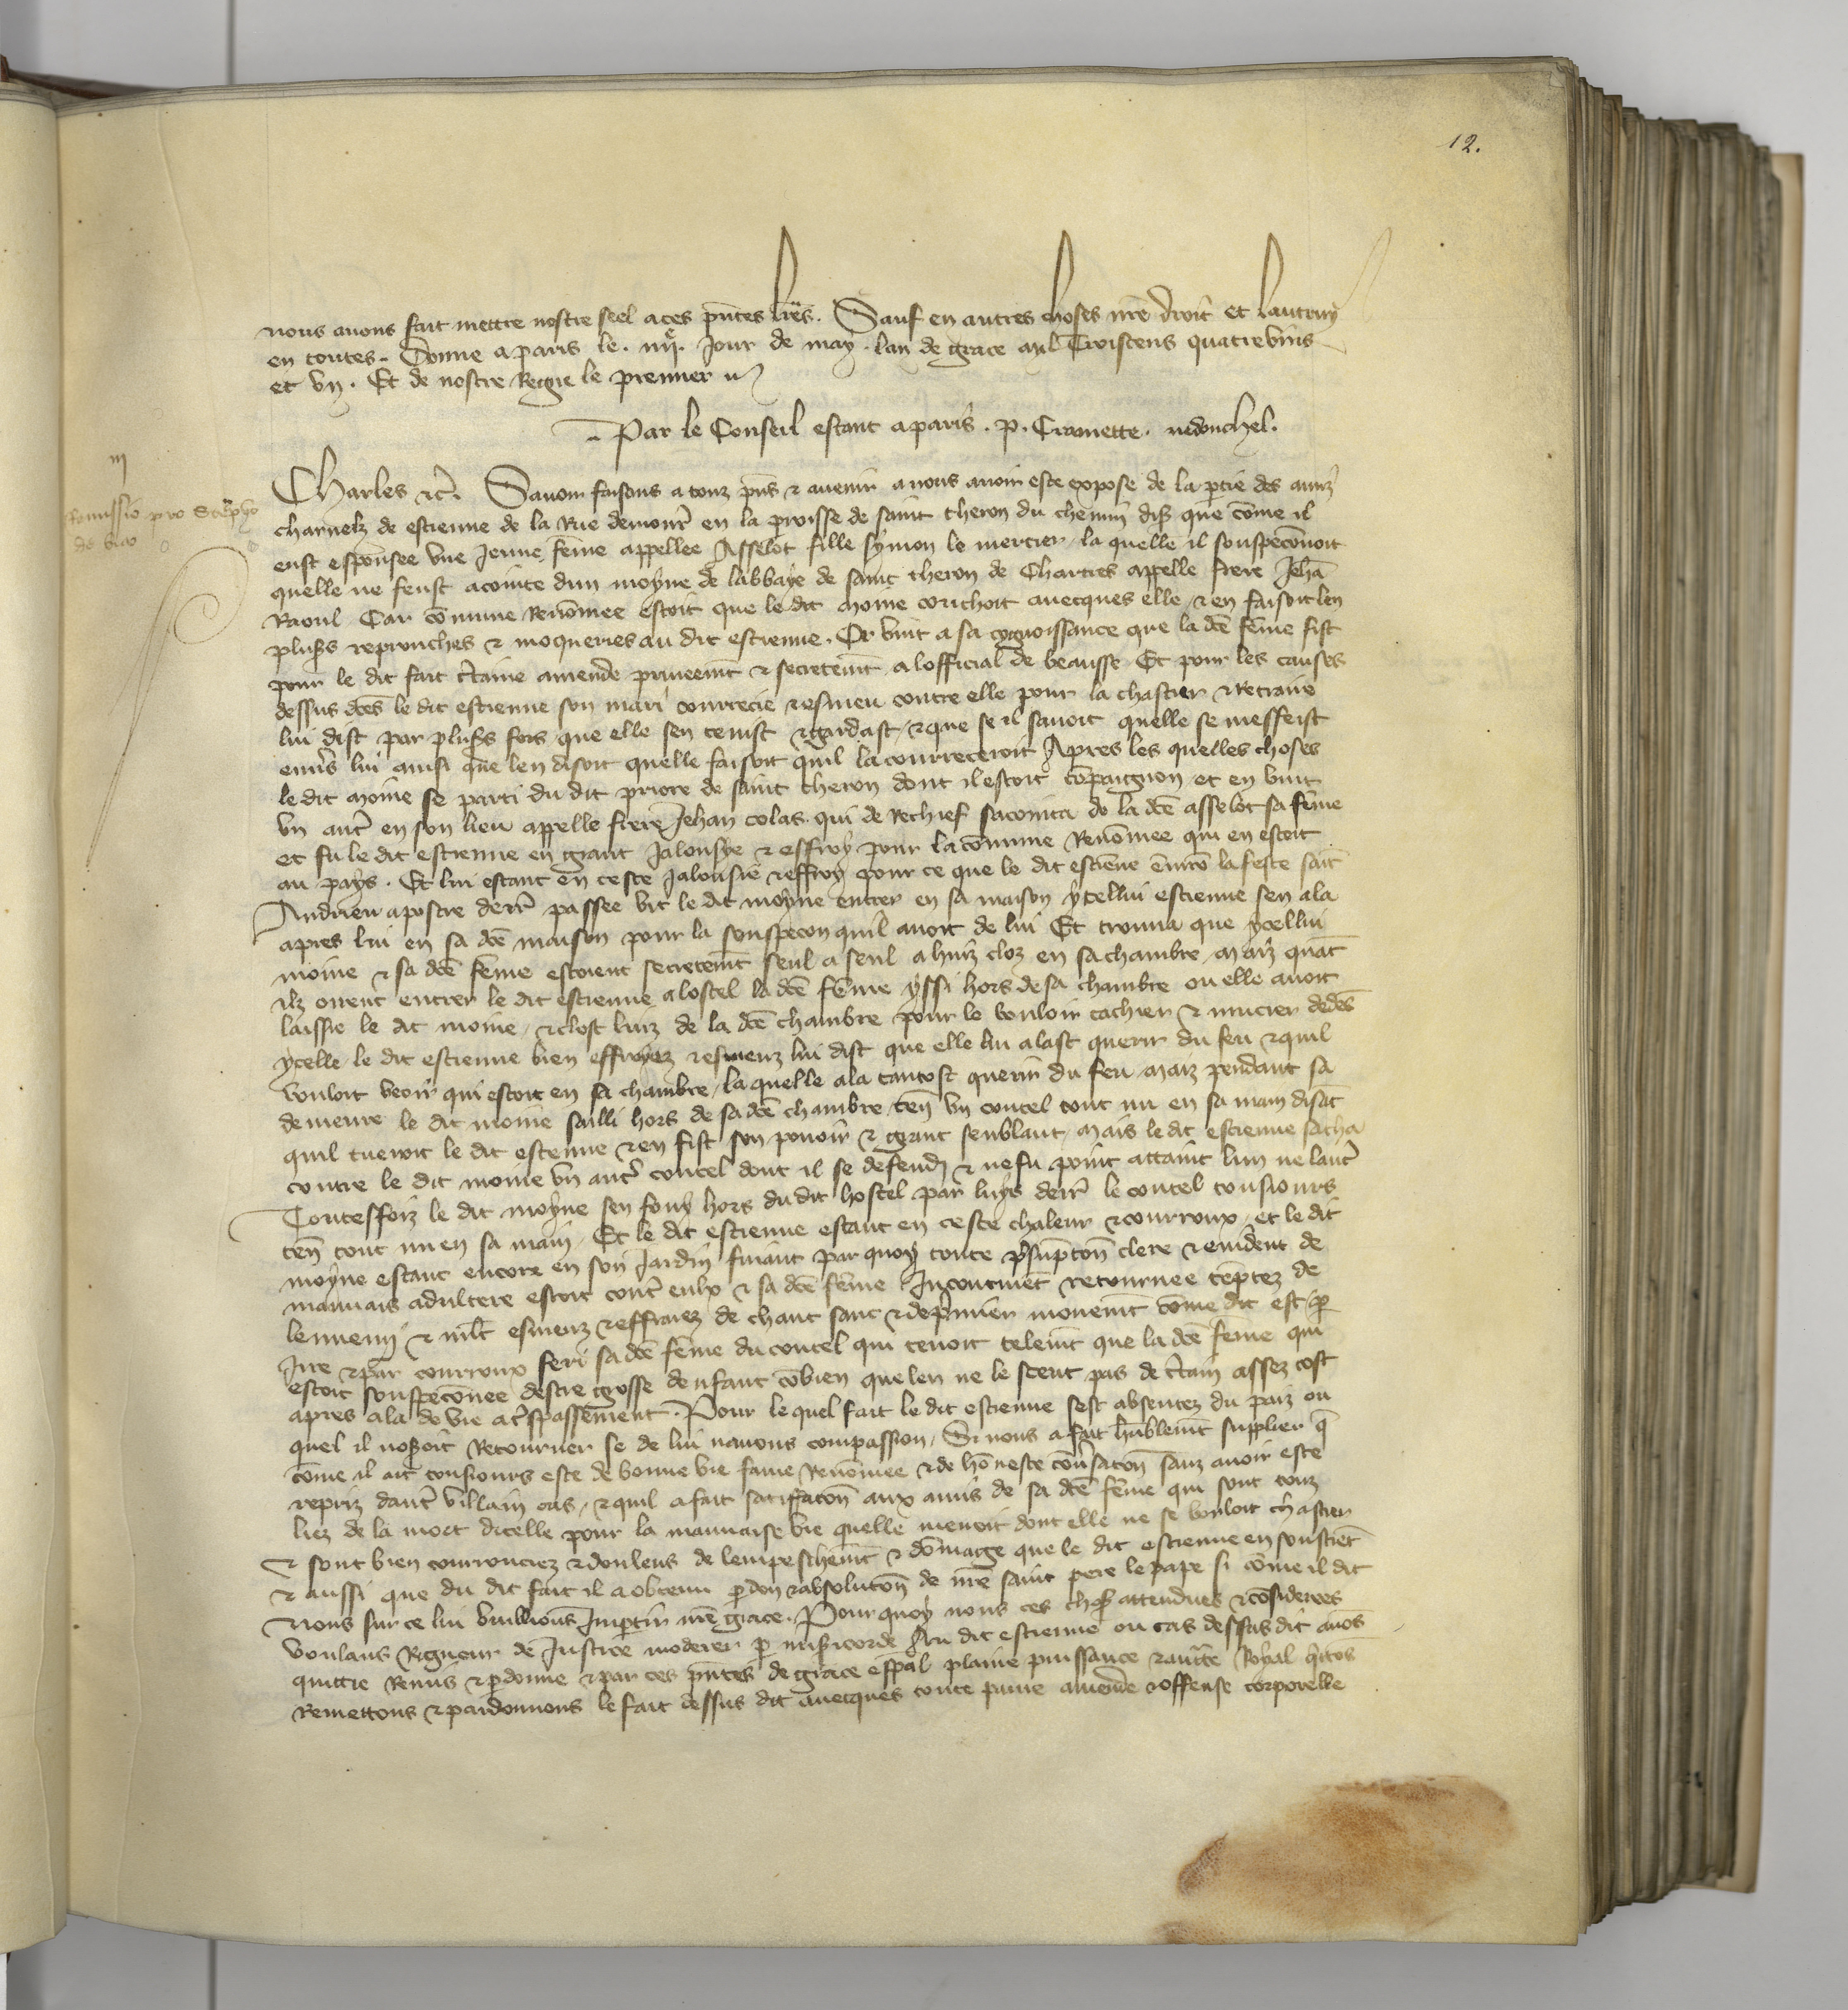 12.
nous avons fait mettre nostre seel a ces pñtes lr̃es. Sauf en autres choses nr̃e droit et lautruy
en toutes. Donne a paris le. iiijᵉ. Jour de may. lan de grace mil Troiscens quatrevins
et vn. Et de nostre Regne le premier
Par le Conseil estant a paris. p. Cramette. nedonchel.
iij
Remissio pro Stephō
de vico
Charles etc̃. Savoir faisons a touz pñs & avenir a nous avoir este expose de la ptie des amis
charnelz de estienne de la Rue demour̃ en la proisse de saint cheron du chemin diẜ que cõme il
eust espousee vne Jeune fẽme appellee Asselot fille symon le mercier, la quelle il souspeconnoit
quelle ne feust acointe dun moyne de labbaye de saint cheron de Chartres appelle frere Jehã
Raoul Car cõmune Renõmee estoit que le dit moine couchoit avecques elle, & en faisoit len
plusẜs reprouches & moqueries au dit estienne. Or vint a sa cognoissance que la dc̃e fẽme fist
pour le dit fait c̃taine amende priveemt̃ & secretemt̃ a lofficial de beausse Et pour les causes
dessus dc̃es le dit estienne son mari courrecie & esmeu contre elle pour la chastier & Retraire
lui dist par plusẜs fois que elle sen tenist & gardast, & que se il savoit quelle se messeist
envs̃ lui ainsi que len disoit quelle faisoit quil la courreceroit Apres les quelles choses
le dit moine se parti du dit priore de saint cheron dont il estoit cõpaignon et en vint
vn autr̃ en son lieu appelle frere Jehan colas. qui de Rechief sacointa de la dc̃e asselot sa fẽme
et fu le dit estienne en grant Jalousye & effroy pour la cõmune Renõmee qui en estoit
au pays. Et lui estant en ceste Jalousie & effroy pour ce que le dit estiẽne ẽvirõ la feste sait̃
Andrieu apostre derr̃ passee vit le dit moyne entrer en sa maison ycellui estienne sen ala
apres lui en sa dc̃e maison pour la souspecon quil avoit de lui Et trouva que ycellui
moine & sa dc̃e fẽme estoient secretemt̃ seul a seul a huiz cloz en sa chambre, maiz quãt
ilz oirent entrer le dit estienne a lostel la dc̃e fẽme yssi hors de sa chambre ou elle avoit
laissie le dit moine, & clost luiz de la dc̃e chambre pour le vouloir cachier & mucier dedẽs
ycelle le dit estienne bien effroyez & esmeuz lui dist que elle lui alast querir du feu & quil
vouloit veoir qui estoit en sa chambre, la quelle ala tantost querir du feu maiz pendant sa
demeure le dit moine sailli hors de sa dc̃e chambre teñ vn coutel tout nu en sa main disãt
quil tueroit le dit estienne & en fist son pouoir & grant senblant, mais le dit estienne sacha
contre le dit moine vn autr̃ coutel dont il se defendi & ne fu point attaint lun ne lautr̃
Toutesfoiz le dit moyne sen fouy hors du dit hostel par luys derr̃ le coutel tousiours
teñ tout nu en sa main, Et le dit estienne estant en ceste chaleur & courroux, et le dit
moyne estant encore en son Jardin fuiant par quoy toute p̃sumptoñ clere & evident de
mauvais adultere estoit contr̃ eulx & sa dc̃e fẽme Incontinẽt retournee tẽptez de
lennemy & mlt̃ esmeuz & effraiez de chaut sanc & de p̃mier mouvemt̃ cõme dit est, p̱
Jre & par courroux feri sa dc̃e fẽme du coutel qui tenoit telemt̃ que la dc̃e fẽme qui
estoit souspeconee destre grosse denfant cõbien que len ne le sceut pas de c̃tain assez tost
apres ala de vie a tr̃spassement. Pour le quel fait le dit estienne sest absentez du paiz ou
quel il noẜoit Retourner se de lui navons compassion, Si nous a fait hũblemt̃ supplier q̃
cõme il ait tousiours este de bonne vie fame Renõmee & de hõneste cõṽsatoñ sanz avoir este
repriz dautr̃ villain cas, & quil a fait satiffatoñ aux amis de sa dc̃e fẽme qui sont touz
liez de la mort dicelle pour la mauvaise vie quelle menoit dont elle ne se vouloit chastier
& sont bien courrouciez & doulens de lempeschemt̃ & dõmage que le dit estienne en soustiẽt
& aussi que du dit fait il a obtenu p̱don & absolutoñ de nr̃e saint pere le pape si cõme il dit
& nous sur ce lui vuillions Imptir nr̃e grace. Pour quoy nous ces choẜ attendues & cõsiderees
voulans Rigueur de Justice moderer p̱ miẜicorde Au dit estienne ou cas dessus dit avõs
quittie Remis & p̱donne & par ces pñtes de grace esp̃al plaine puissance & auct̃e Royal qt̃tõs
Remettons & pardonnons le fait dessus dit avecques toute paine amende & offense corporelle